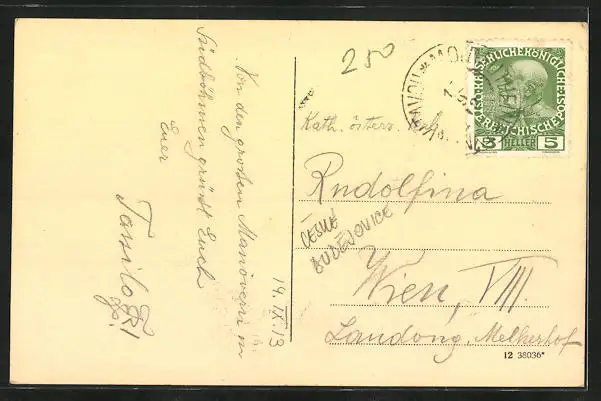 250
KAISERLICHE KÖNIGLICHE
POST
ÖSTERREICHISCHE
5 HELLER 5
Von den großen Manövern in
Südböhmen grüßt Euch
Euer
14. IX. 13
Kath. österr.
Rudolfina
ČESKÉ
BUDĚJOVICE
Wien, VIII.
Landong. Melkerhof
12 38036*